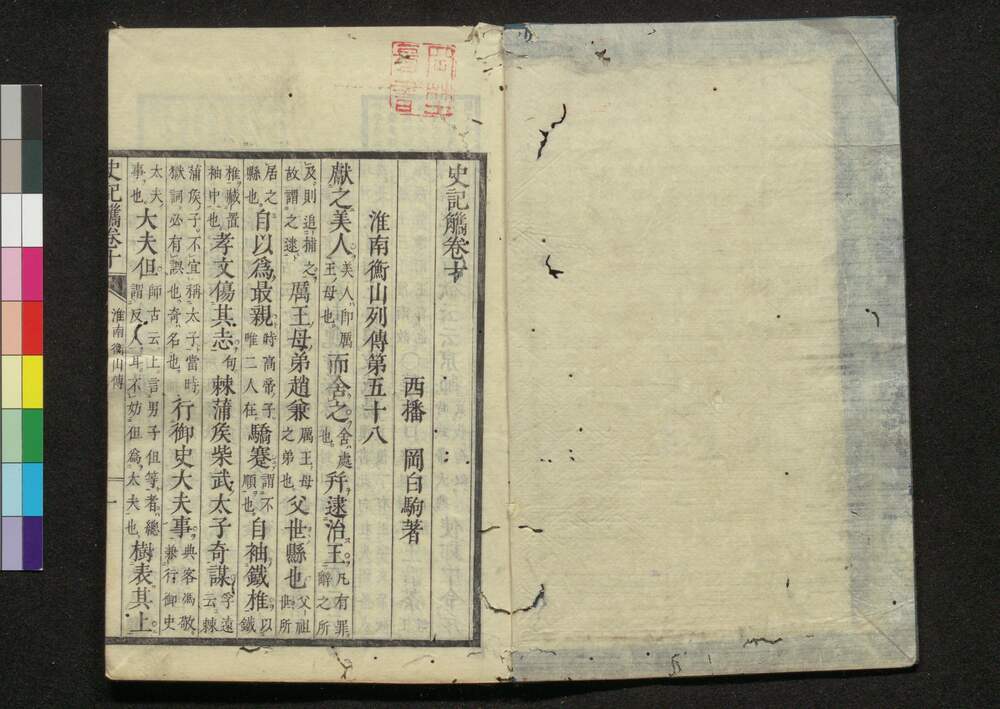 史記觿卷十
西播 岡白駒著
淮南衡山列傳第五十八
獻之美人美人卽厲王母也而舍之舍處也幷逮治王凡有罪辭之所
及則追捕之故謂之逮厲王母弟趙兼厲王母之弟也父世縣也父祖世所
居之縣也自以爲最親時高帝子唯二人在驕蹇謂不順也自袖鐵椎以鐵
椎藏置袖中也孝文傷其志句棘蒲侯柴武太子奇謀孚遠云棘
蒲侯子不宜稱太子當時獄詞必有誤也奇名也行御史大夫事典客馮敬兼行御史
大夫事也大夫但師古云上言男子但等者總謂反人耳不妨但爲大夫也樹表其上
史記觿卷十
淮南衡山傳
一